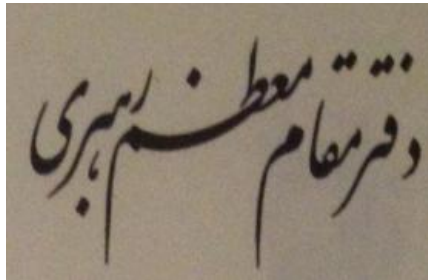 دفتر مقام معظم رهبری